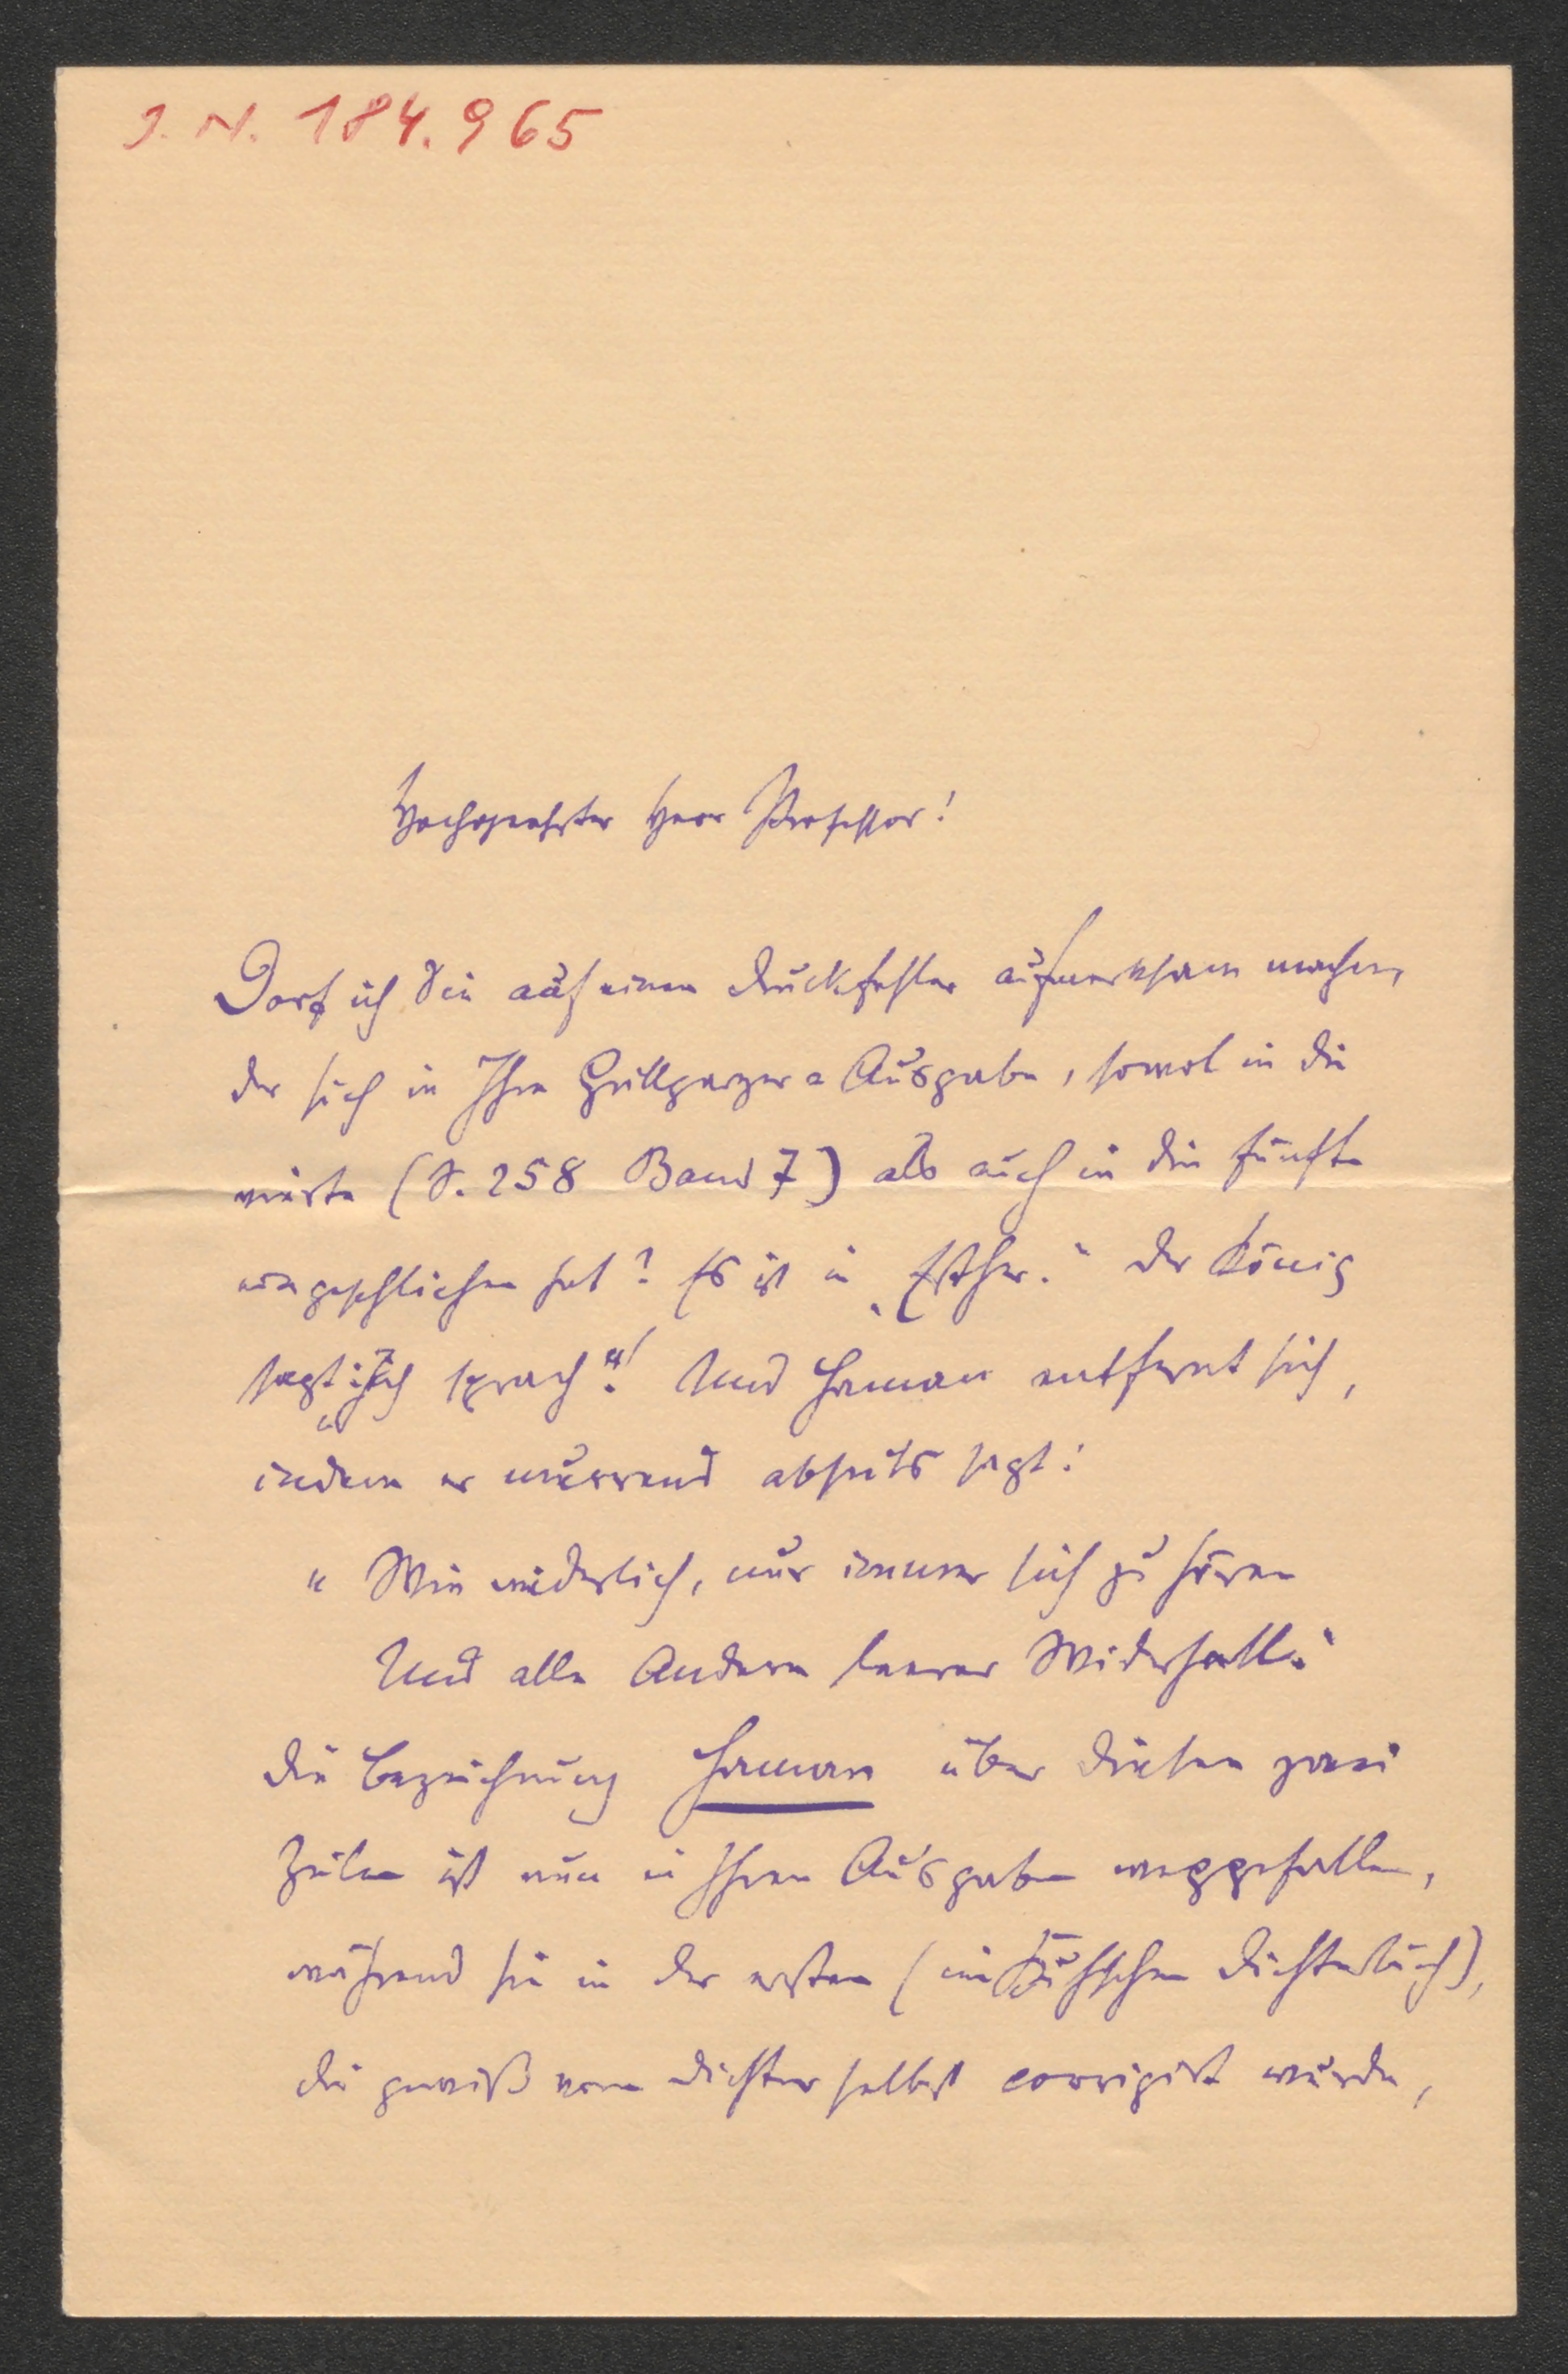 I. N. 184.965
Hochgeehrter Herr Professor!
Darf ich Sie auf einen Druckfehler aufmerksam machen,
der sich in Ihre Grillparzer=Ausgabe, sowol in die
vierte (S. 258 Band 7) als auch in die fünfte
eingeschlichen hat? Es ist in „Esther.“ Der König
sagt: „Ich sprach“! Und Haman entfernt sich,
indem er murrend abseits sagt:
„Wie widerlich, nur immer sich zu hören
Und alle Andern leerer Widerhall.“
Die Bezeichnung Haman über diesen zwei
Zeilen ist nun in Ihren Ausgaben weggefallen,
während sie in der ersten (im Kuh'schen Dichterbuch),
die gewiß vom Dichter selbst corrigirt wurde,